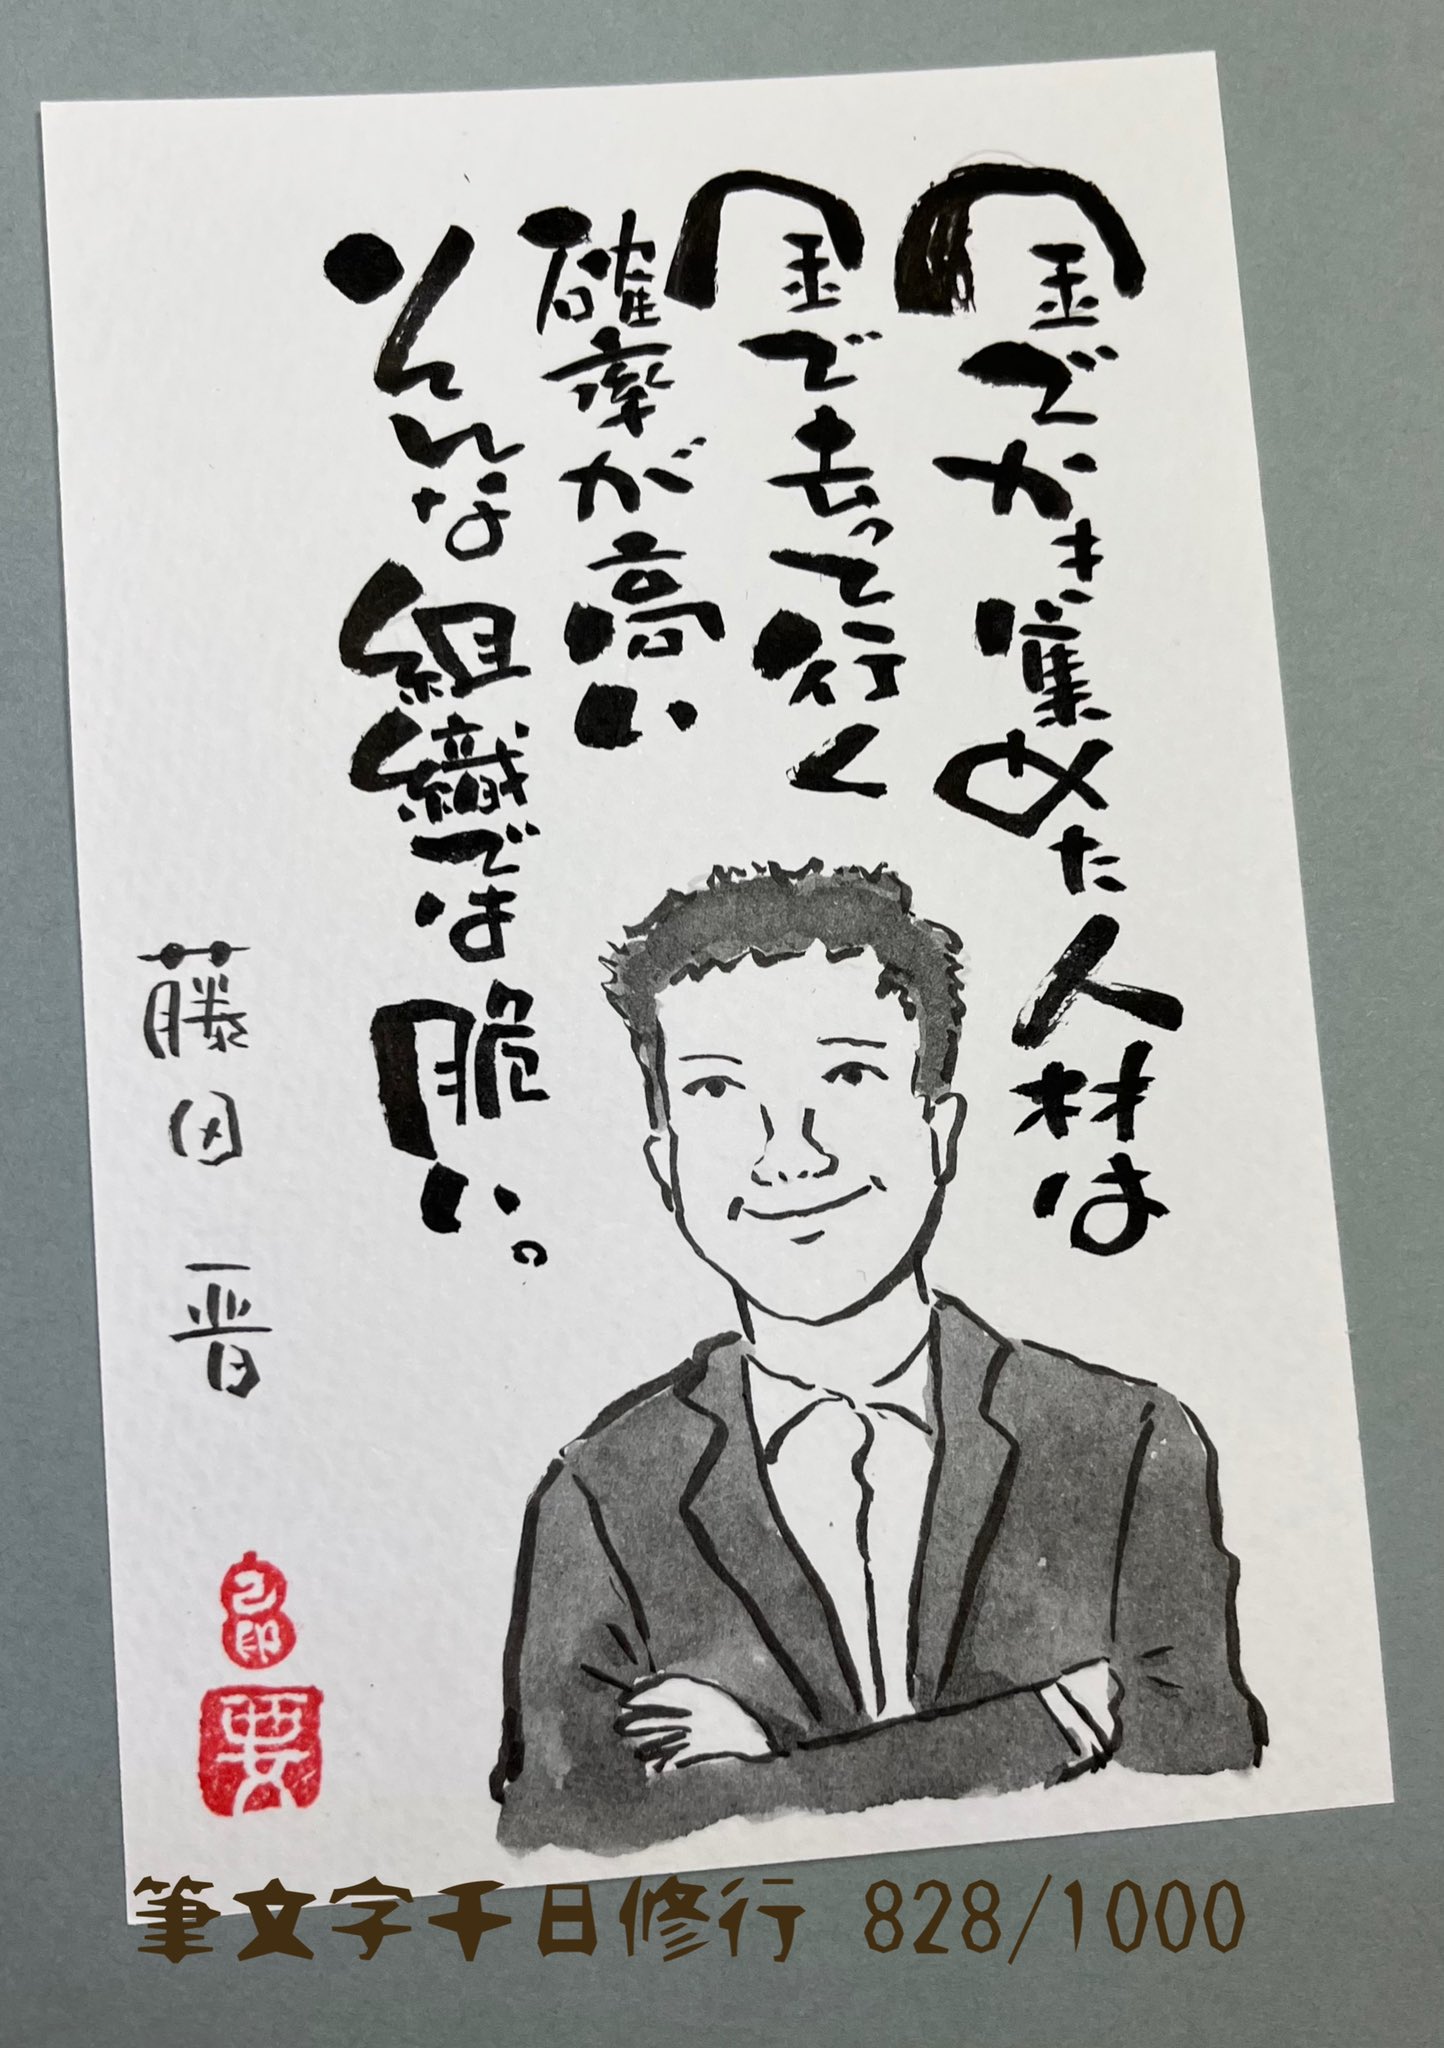 金でかき集めた人材は
金で去って行く
確率が高い
そんな組織では脆い。
藤田晋
要
筆文字千日修行 828/1000